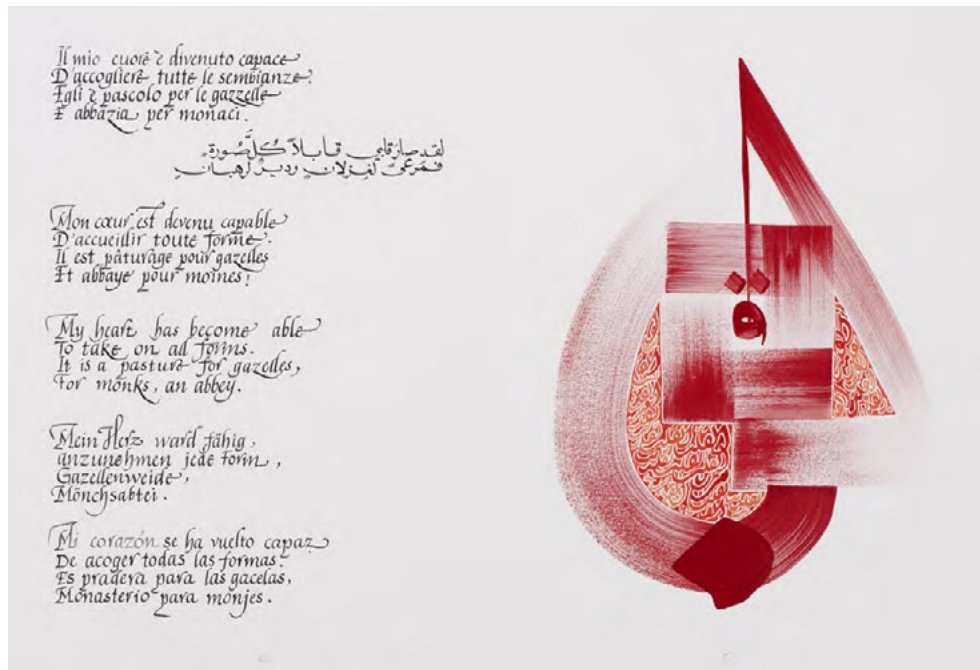 Il mio cuore è divenuto capace
D'accogliere tutte le sembianze.
Egli è pascolo per le gazzelle
E abbazia per monaci.
لقد صار قلبي قابلاً كُلَّ صُورة
فمَرعىً لغزلانٍ وديرٌ لرهبانٍ
Mon cœur est devenu capable
D'accueillir toute forme.
Il est pâturage pour gazelles
Et abbaye pour moines!
My heart has become able
To take on all forms.
It is a pasture for gazelles,
For monks, an abbey.
Mein Herz ward fähig,
anzunehmen jede form,
Gazellenweide,
Mönchsabtei.
Mi corazón se ha vuelto capaz
De acoger todas las formas.
Es pradera para las gacelas,
Monasterio para monjes.